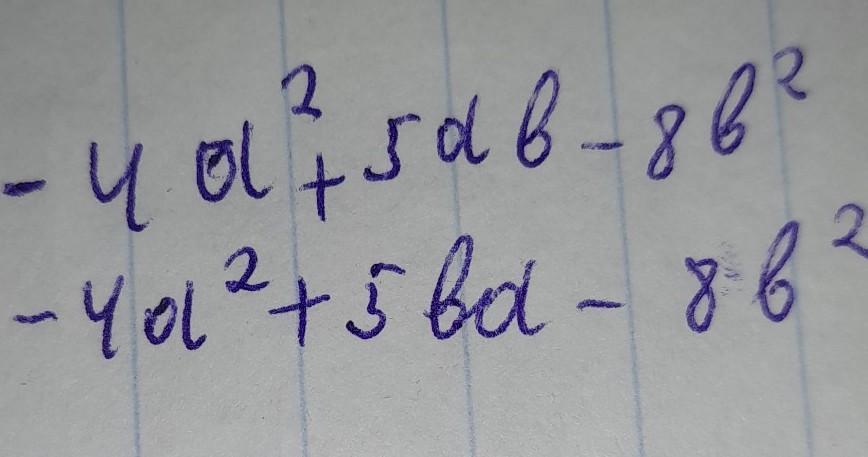 -4a²+5ab-8b²
-4a²+5ba-8b²